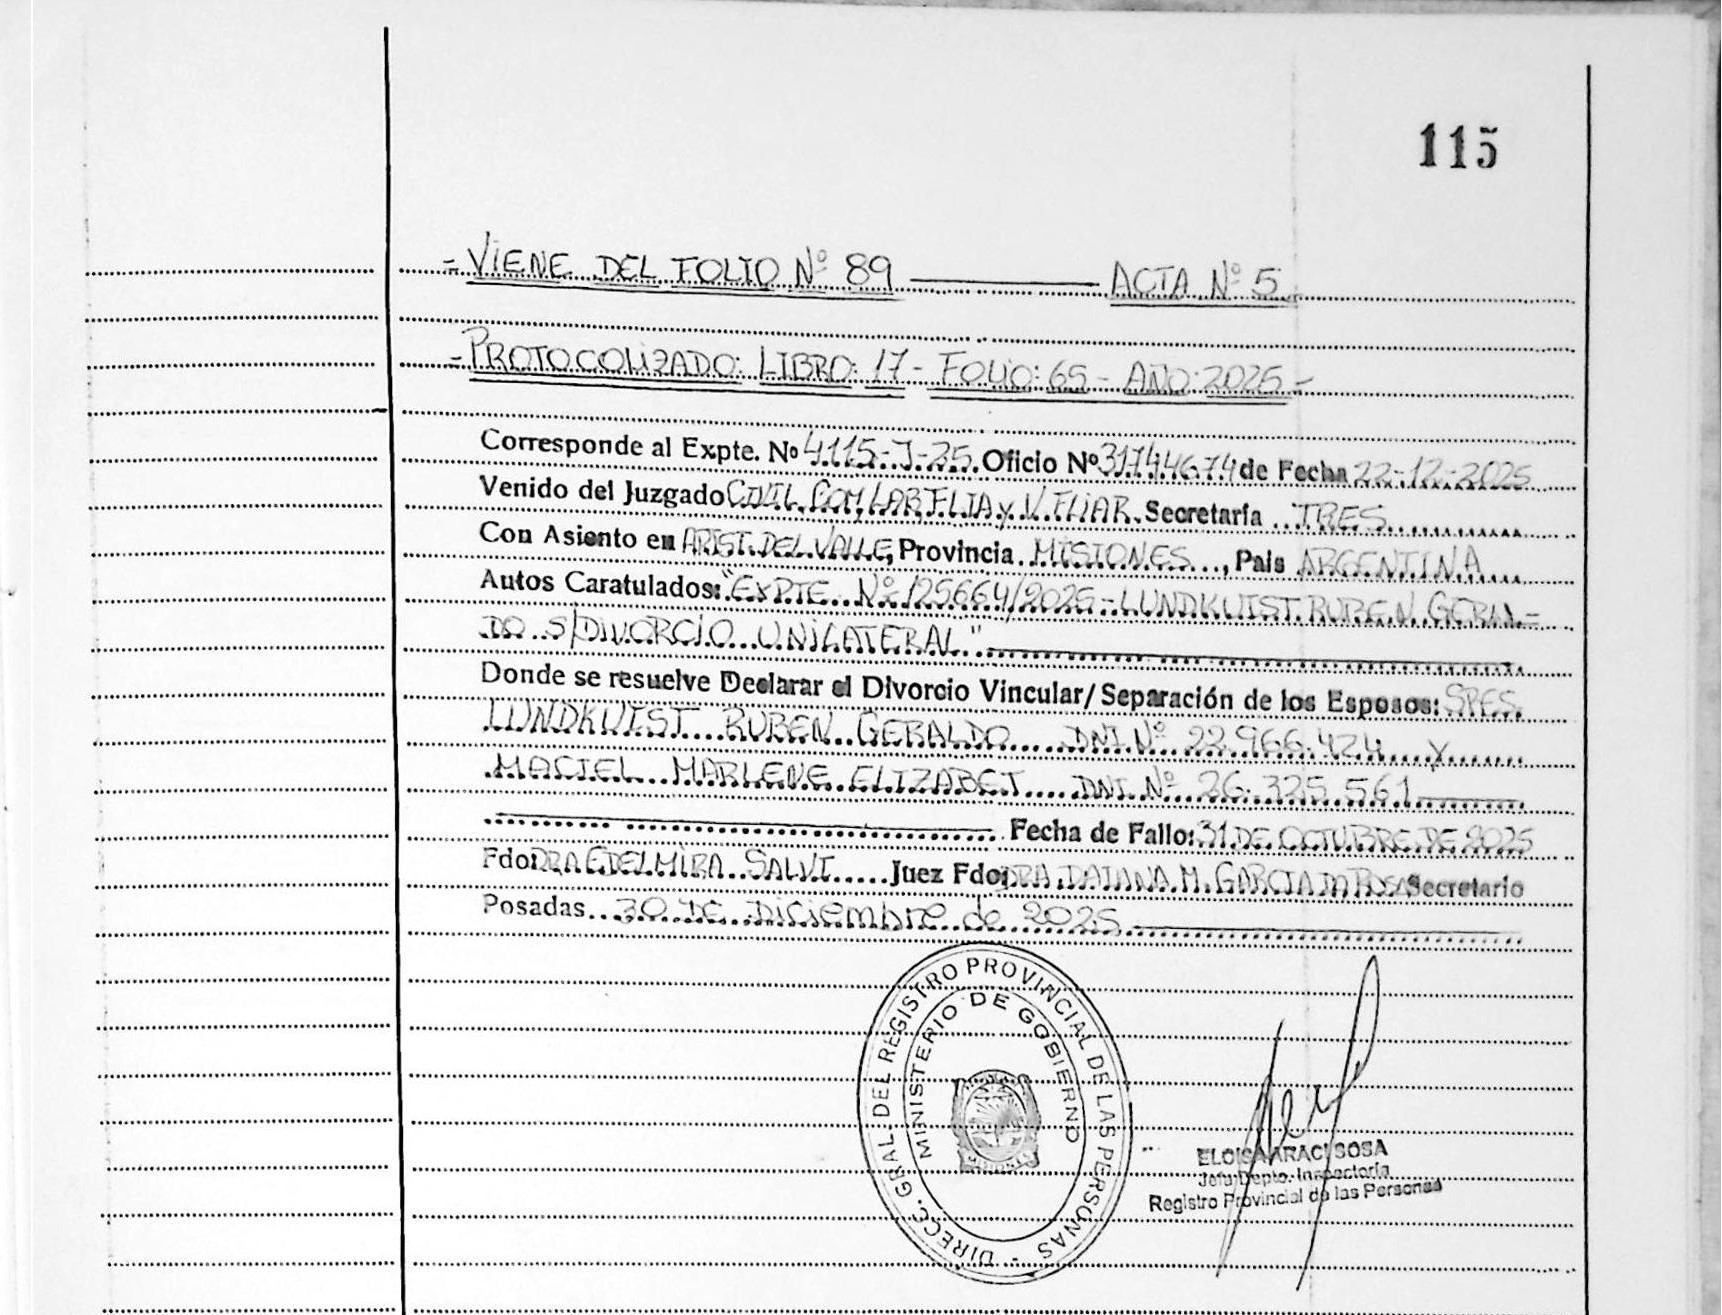 115
- VIENE DEL FOLIO Nº 89 ——— ACTA Nº 5
- PROTOCOLIZADO: LIBRO: 17 - FOLIO: 65 - AÑO: 2025 -
Corresponde al Expte. Nº 4115-J-25. Oficio Nº 31744674 de Fecha 22-12-2025
Venido del Juzgado CIVIL, COM, LAB, FLIA y V. FLIAR. Secretaría TRES
Con Asiento en ARIST. DEL VALLE, Provincia MISIONES, Pais ARGENTINA
Autos Caratulados: "EXPTE Nº 125664/2025 - LUNDKUIST RUBEN GERAL=
DO S/DIVORCIO UNILATERAL"
Donde se resuelve Declarar el Divorcio Vincular/Separación de los Esposos: SRES.
LUNDKUIST RUBEN GERALDO DNI Nº 22.966.424 y
MACIEL MARLENE ELIZABET DNI Nº 26.325.561
Fecha de Fallo: 31 DE OCTUBRE DE 2025
Fdo: DRA EDELMIRA SALVI Juez Fdo: DRA. DAIANA M. GARCIA Secretario
Posadas 30 DE Diciembre de 2025
DIRECC. GRAL. DEL REGISTRO PROVINCIAL DE LAS PERSONAS -
MINISTERIO DE GOBIERNO
ELOISA ARACI SOSA
Jefa Depto. Inspectoría
Registro Provincial de las Personas